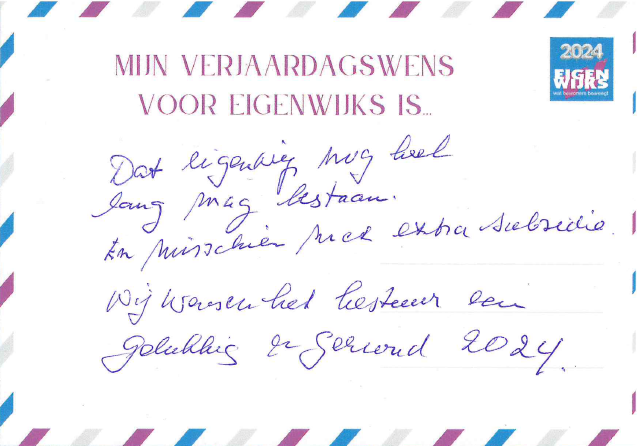 MIJN VERJAARDAGSWENS
VOOR EIGENWIJKS IS...
2024
EIGEN
WIJKS
Dat eigenwijs nog heel
lang mag bestaan.
En misschien met extra subsidie.
Wij wensen het bestuur een
gelukkig en gezond 2024.